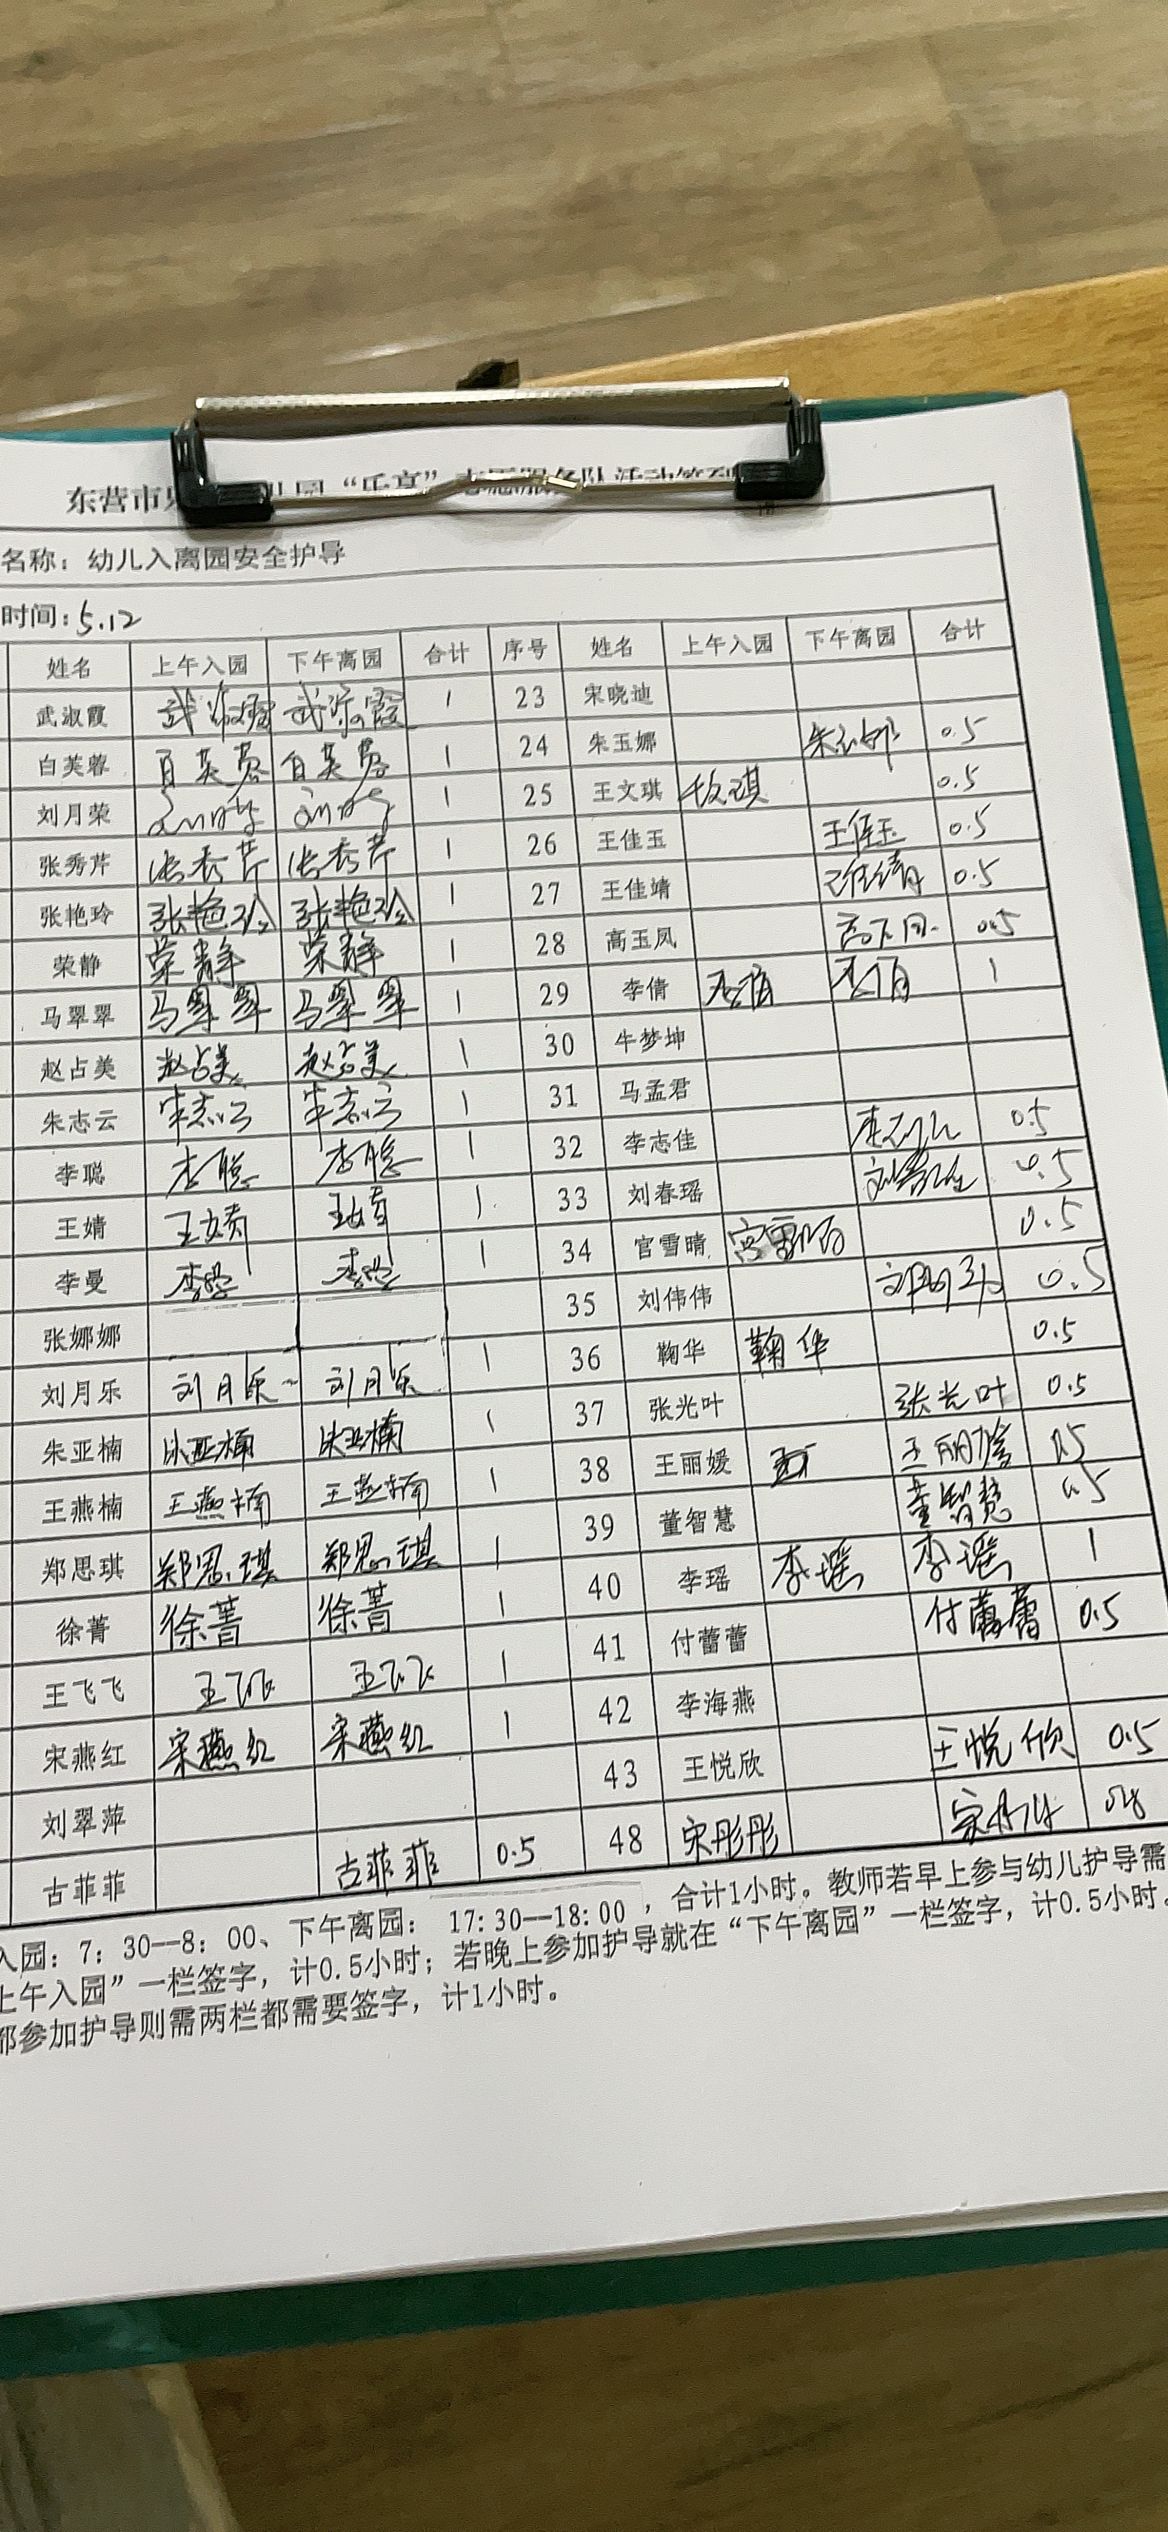 东营市
名称：幼儿入离园安全护导
时间：5.12
姓名 上午入园 下午离园 合计 序号 姓名 上午入园 下午离园 合计
武淑霞 武淑霞 武淑霞 1 23 宋晓迪
白芙蓉 白芙蓉 白芙蓉 1 24 朱玉娜 朱玉娜 0.5
刘月荣 1 25 王文琪 0.5
张秀芹 张秀芹 张秀芹 1 26 王佳玉 王佳玉 0.5
张艳玲 张艳玲 张艳玲 1 27 王佳靖 王佳靖 0.5
荣静 荣静 荣静 1 28 高玉凤 0.5
马翠翠 马翠翠 马翠翠 1 29 李倩 李倩 李倩 1
赵占美 赵占美 赵占美 1 30 牛梦坤
朱志云 朱志云 朱志云 1 31 马孟君
李聪 李聪 李聪 1 32 李志佳 0.5
王婧 王婧 王婧 1 33 刘春瑶 0.5
李曼 李曼 李曼 1 34 官雪晴 0.5
张娜娜 35 刘伟伟 0.5
刘月乐 刘月乐 刘月乐 1 36 鞠华 鞠华 0.5
朱亚楠 朱亚楠 朱亚楠 1 37 张光叶 张光叶 0.5
王燕楠 王燕楠 王燕楠 1 38 王丽媛 王丽媛 0.5
郑思琪 郑思琪 郑思琪 1 39 董智慧 董智慧 0.5
徐菁 徐菁 徐菁 1 40 李瑶 李瑶 李瑶 1
王飞飞 王飞飞 王飞飞 1 41 付蕾蕾 付蕾蕾 0.5
宋燕红 宋燕红 宋燕红 1 42 李海燕
刘翠萍 43 王悦欣 王悦欣 0.5
古菲菲 古菲菲 0.5 48 宋彤彤
入园：7：30—8：00、下午离园：17:30—18:00，合计1小时。教师若早上参与幼儿护导需
上午入园”一栏签字，计0.5小时；若晚上参加护导就在“下午离园”一栏签字，计0.5小时。
都参加护导则需两栏都需要签字，计1小时。